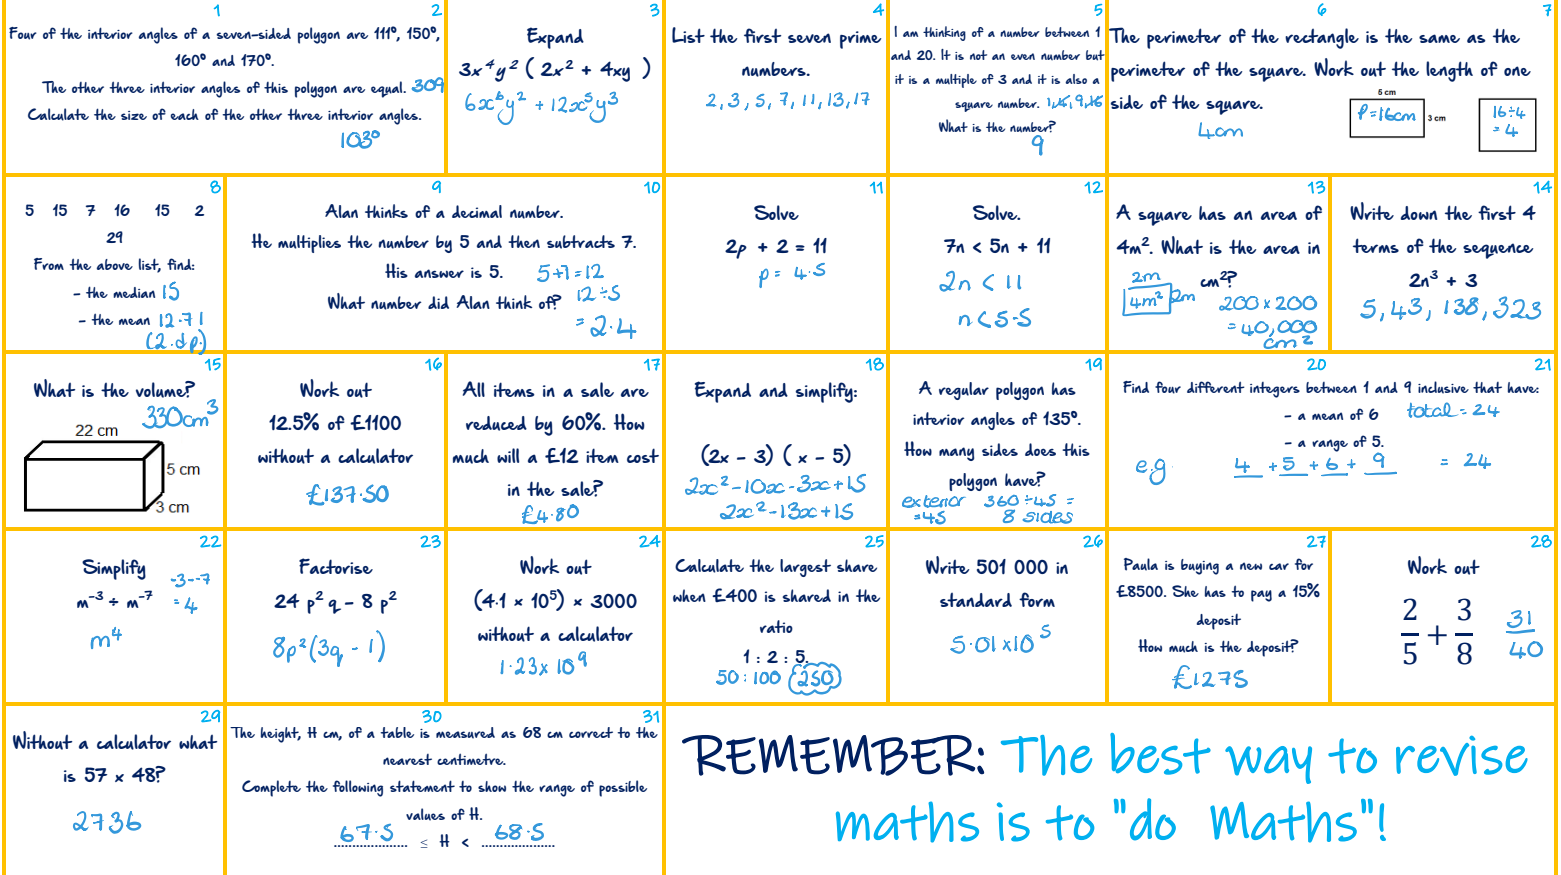 1 2
Four of the interior angles of a seven-sided polygon are 111°, 150°,
160° and 170°.
The other three interior angles of this polygon are equal. 309
Calculate the size of each of the other three interior angles.
103°
3
Expand
3x⁴y² ( 2x² + 4xy )
6x⁶y² + 12x⁵y³
4
List the first seven prime
numbers.
2, 3, 5, 7, 11, 13, 17
5
I am thinking of a number between 1
and 20. It is not an even number but
it is a multiple of 3 and it is also a
square number. 1, 9,
What is the number?
9
6 7
The perimeter of the rectangle is the same as the
perimeter of the square. Work out the length of one
side of the square.
4cm
5 cm
P=16cm
3 cm
16÷4
= 4
8
5 15 7 16 15 2
29
From the above list, find:
- the median 15
- the mean 12.71
(2.dp)
9 10
Alan thinks of a decimal number.
He multiplies the number by 5 and then subtracts 7.
His answer is 5. 5+7=12
What number did Alan think of? 12÷5
= 2.4
11
Solve
2p + 2 = 11
p = 4.5
12
Solve.
7n < 5n + 11
2n < 11
n < 5.5
13
A square has an area of
4m². What is the area in
cm²?
2m
4m² 2m
200 x 200
= 40,000
cm²
14
Write down the first 4
terms of the sequence
2n³ + 3
5, 43, 138, 323
15
What is the volume?
330cm³
22 cm
5 cm
3 cm
16
Work out
12.5% of £1100
without a calculator
£137.50
17
All items in a sale are
reduced by 60%. How
much will a £12 item cost
in the sale?
£4.80
18
Expand and simplify:
(2x - 3) ( x - 5)
2x²-10x-3x+15
2x²-13x+15
19
A regular polygon has
interior angles of 135°.
How many sides does this
polygon have?
exterior 360÷45 =
=45 8 sides
20 21
Find four different integers between 1 and 9 inclusive that have:
- a mean of 6 total = 24
- a range of 5.
e.g 4 + 5 + 6 + 9 = 24
22
Simplify
m⁻³ ÷ m⁻⁷
-3--7
= 4
m⁴
23
Factorise
24 p² q - 8 p²
8p²(3q - 1)
24
Work out
(4.1 × 10⁵) × 3000
without a calculator
1.23x 10⁹
25
Calculate the largest share
when £400 is shared in the
ratio
1 : 2 : 5.
50 : 100 250
26
Write 501 000 in
standard form
5.01x10⁵
27
Paula is buying a new car for
£8500. She has to pay a 15%
deposit
How much is the deposit?
£1275
28
Work out
2/5 + 3/8
31/40
29
Without a calculator what
is 57 x 48?
2736
30 31
The height, H cm, of a table is measured as 68 cm correct to the
nearest centimetre.
Complete the following statement to show the range of possible
values of H.
67.5 ≤ H < 68.5
REMEMBER: The best way to revise
maths is to "do Maths"!